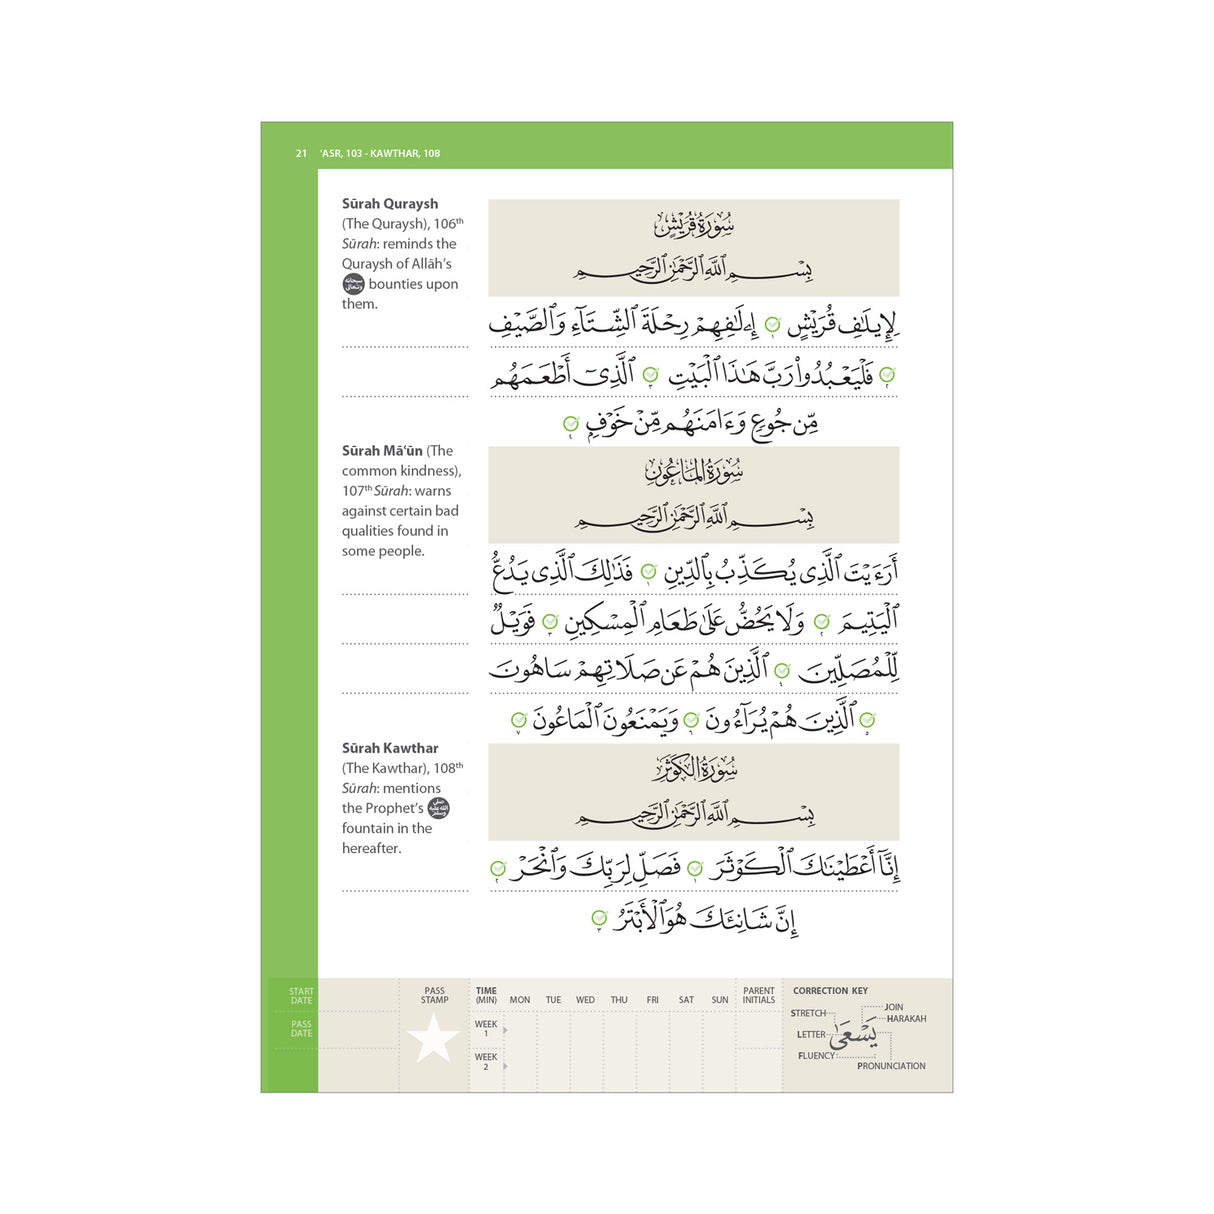 21 'ASR, 103 - KAWTHAR, 108
Sūrah Quraysh
(The Quraysh), 106th
Sūrah: reminds the
Quraysh of Allāh's
bounties upon
them.
سُورَةُ قُرَيْشٍ
بِسْمِ ٱللَّهِ ٱلرَّحْمَٰنِ ٱلرَّحِيمِ
لِإِيلَٰفِ قُرَيْشٍ ١ إِۦلَٰفِهِمْ رِحْلَةَ ٱلشِّتَآءِ وَٱلصَّيْفِ
٢ فَلْيَعْبُدُوا۟ رَبَّ هَٰذَا ٱلْبَيْتِ ٣ ٱلَّذِىٓ أَطْعَمَهُم
مِّن جُوعٍ وَءَامَنَهُم مِّنْ خَوْفٍۭ ٤
Sūrah Mā'ūn (The
common kindness),
107th Sūrah: warns
against certain bad
qualities found in
some people.
سُورَةُ المَاعُونِ
بِسْمِ ٱللَّهِ ٱلرَّحْمَٰنِ ٱلرَّحِيمِ
أَرَءَيْتَ ٱلَّذِى يُكَذِّبُ بِٱلدِّينِ ١ فَذَٰلِكَ ٱلَّذِى يَدُعُّ
ٱلْيَتِيمَ ٢ وَلَا يَحُضُّ عَلَىٰ طَعَامِ ٱلْمِسْكِينِ ٣ فَوَيْلٌ
لِّلْمُصَلِّينَ ٤ ٱلَّذِينَ هُمْ عَن صَلَاتِهِمْ سَاهُونَ
٥ ٱلَّذِينَ هُمْ يُرَآءُونَ ٦ وَيَمْنَعُونَ ٱلْمَاعُونَ ٧
Sūrah Kawthar
(The Kawthar), 108th
Sūrah: mentions
the Prophet's
fountain in the
hereafter.
سُورَةُ الكَوْثَرِ
بِسْمِ ٱللَّهِ ٱلرَّحْمَٰنِ ٱلرَّحِيمِ
إِنَّآ أَعْطَيْنَٰكَ ٱلْكَوْثَرَ ١ فَصَلِّ لِرَبِّكَ وَٱنْحَرْ ٢
إِنَّ شَانِئَكَ هُوَ ٱلْأَبْتَرُ ٣
START DATE
PASS DATE
PASS STAMP
TIME (MIN) MON TUE WED THU FRI SAT SUN
WEEK 1
WEEK 2
PARENT INITIALS
CORRECTION KEY
STRETCH
LETTER
FLUENCY
يَسْعَىٰ
JOIN
HARAKAH
PRONUNCIATION